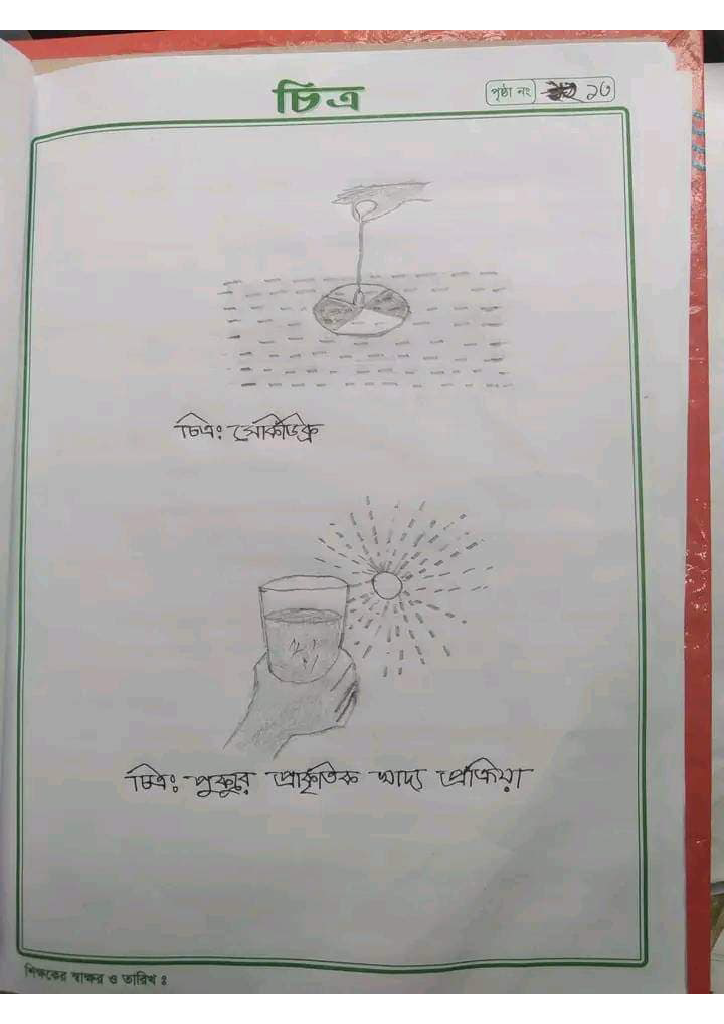 চিত্র
পৃষ্ঠা নং ১৩
চিত্রঃ সেকিডিস্ক
চিত্রঃ পুকুর প্রাকৃতিক খাদ্য প্রক্রিয়া
শিক্ষকের স্বাক্ষর ও তারিখ ঃ